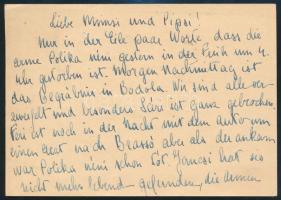 Liebe Mimsi und Pipsi!
Nur in der Eile paar Worte, dass die
arme Potika néni gestern in der Früh um 4
Uhr gestorben ist. Morgen Nachmittag ist
das Begräbnis in Bodola. Wir sind alle ver-
zweifelt und besonders Séri ist ganz gebrochen.
Feri ist noch in der Nacht mit dem Auto um
einen Arzt nach Brassó aber als der ankam
war Potika néni schon tot. Jancsi hat sie
nicht mehr lebend gefunden, die armen